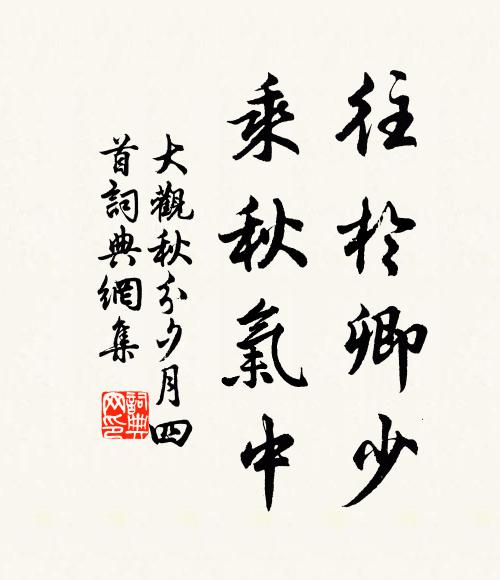 往於卿少
乘秋氣中
大觀秋分夕月四
首詞典網集
詞典
网印